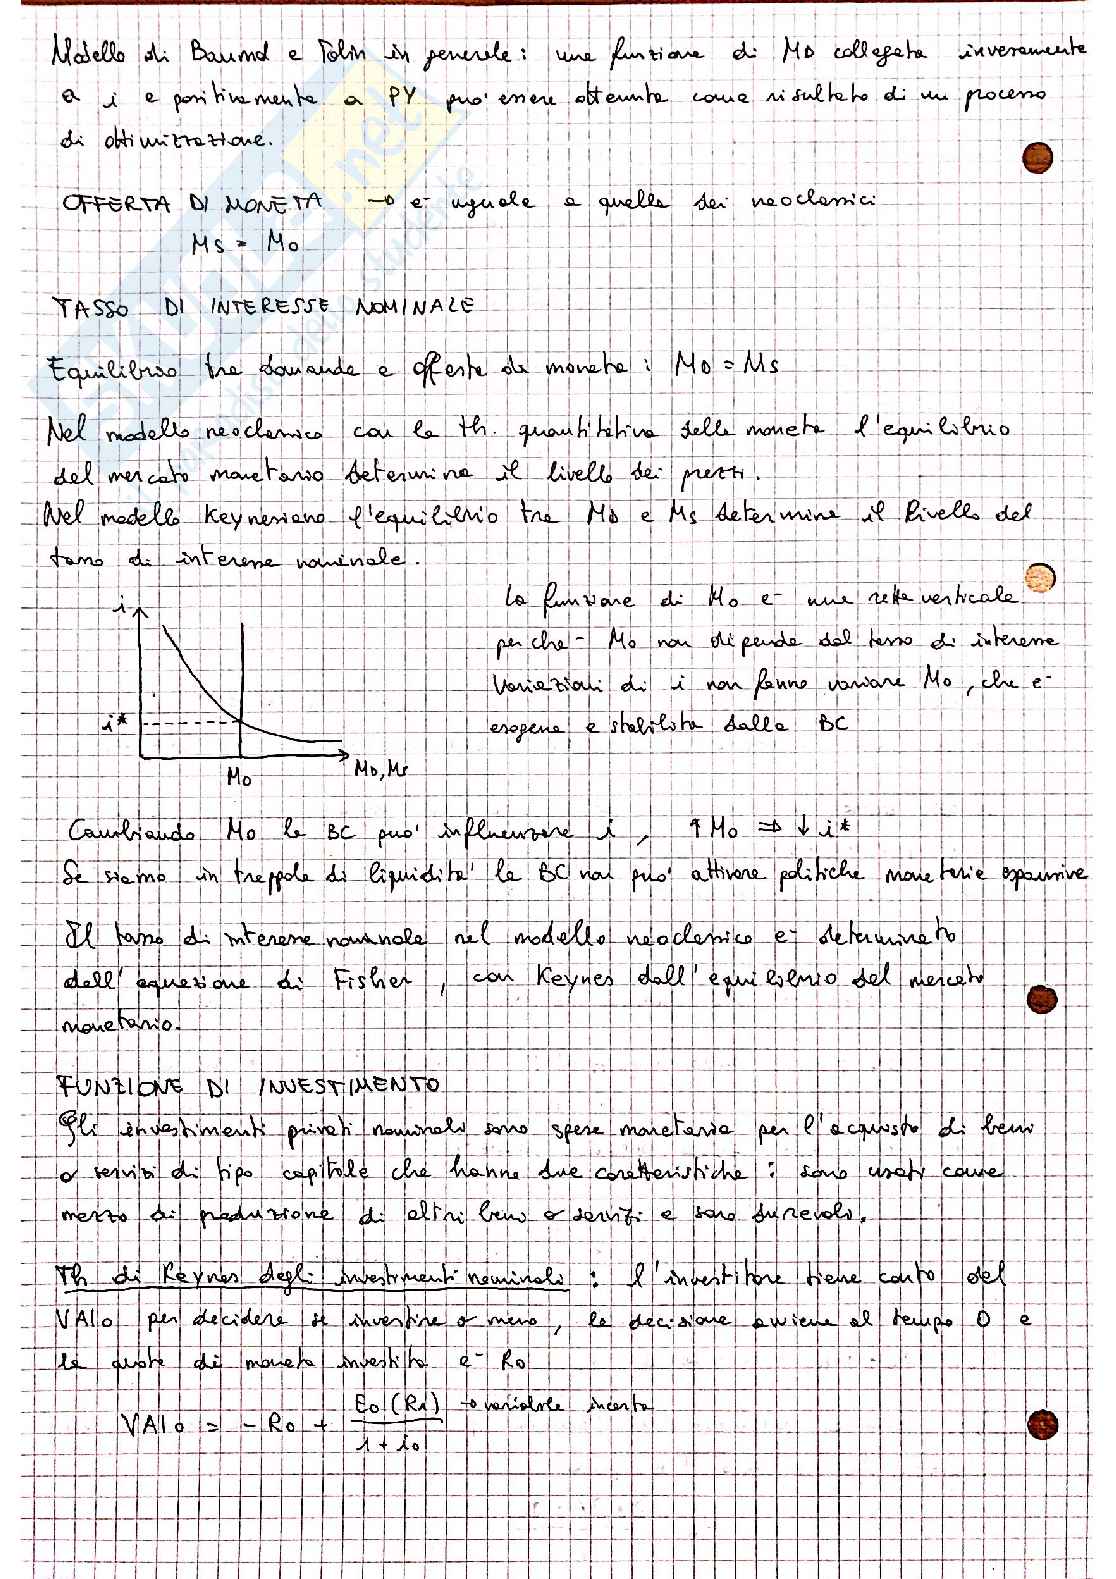 Modello di Baumol e Tobin in generale: una funzione di MD collegata inversamente
a i e positivamente a PY puo' essere ottenuta come risultato di un processo
di ottimizzazione.
OFFERTA DI MONETA → e' uguale a quella dei neoclassici
MS = M0
TASSO DI INTERESSE NOMINALE
Equilibrio tra domanda e offerta di moneta: MD = MS
Nel modello neoclassico con la th. quantitativa della moneta l'equilibrio
del mercato monetario determina il livello dei prezzi.
Nel modello Keynesiano l'equilibrio tra MD e MS determina il livello del
tasso di interesse nominale.
La funzione di M0 e' una retta verticale
perche' M0 non dipende dal tasso di interesse
Variazioni di i non fanno variare M0, che e'
esogena e stabilita dalla BC
i
i*
M0
MD, MS
Cambiando M0 la BC puo' influenzare i, ↑M0 ⇒ ↓i*
Se siamo in trappola di liquidita' la BC non puo' attivare politiche monetarie espansive
Il tasso di interesse nominale nel modello neoclassico e' determinato
dall'equazione di Fisher, con Keynes dall'equilibrio del mercato
monetario.
FUNZIONE DI INVESTIMENTO
Gli investimenti privati nominali sono spese monetarie per l'acquisto di beni
o servizi di tipo capitale che hanno due caratteristiche: sono usati come
mezzo di produzione di altri beni o servizi e sono durevoli.
Th di Keynes degli investimenti nominali: l'investitore tiene conto del
VAI0 per decidere se investire o meno, la decisione avviene al tempo 0 e
la quota di moneta investita e' R0
VAI0 = - R0 + E0(R1) / 1 + i0 → variabile incerta